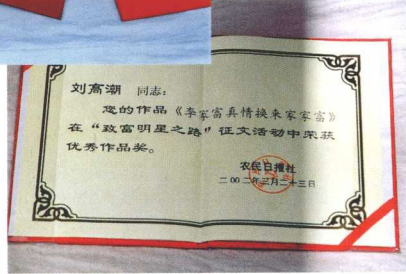 刘高潮 同志：
您的作品《李家富真情换来家家富》
在“致富明星之路”征文活动中荣获
优秀作品奖。
农民日报社
二00二年三月二十三日